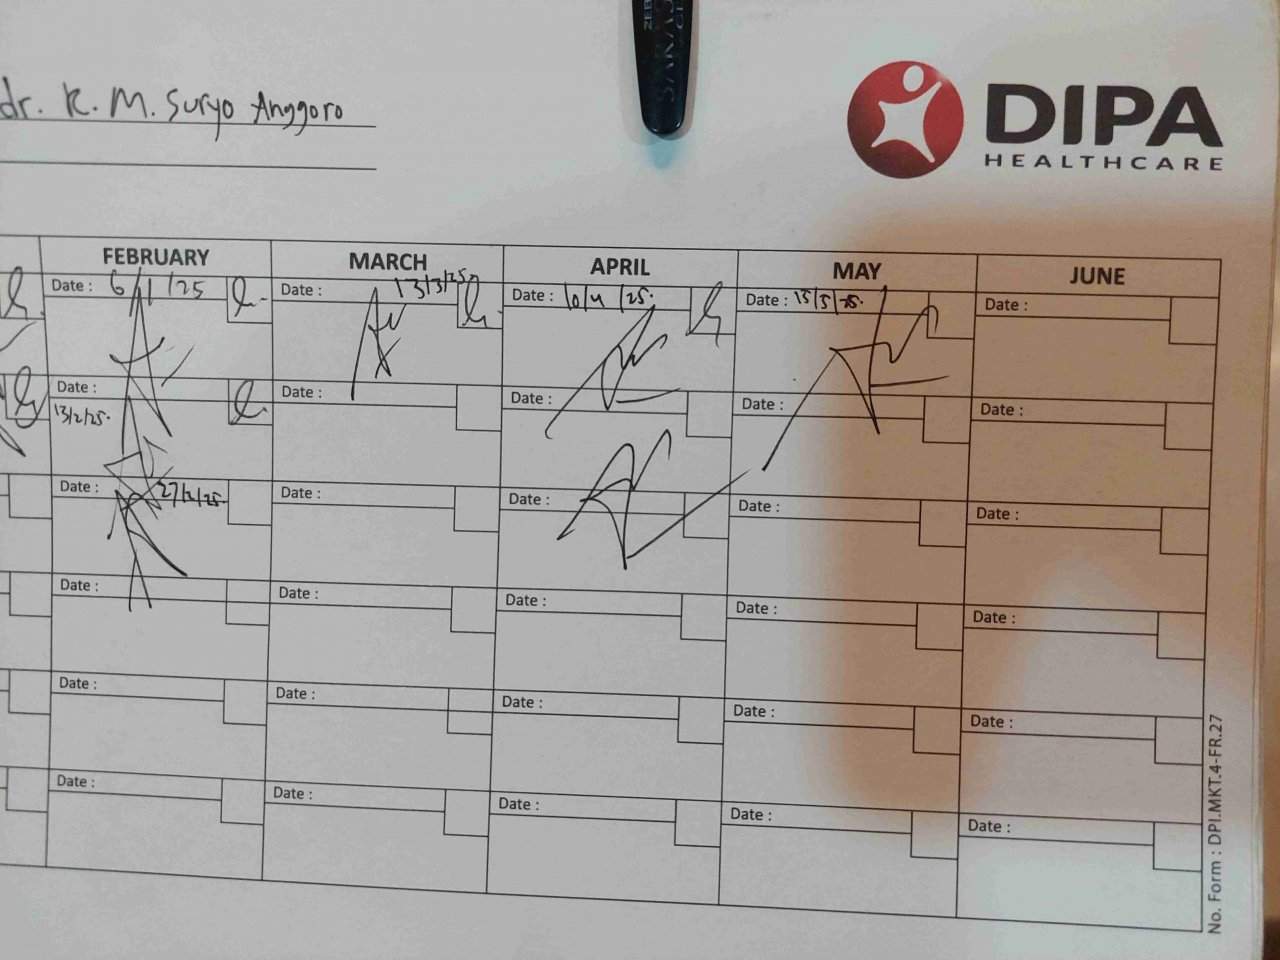 dr. R. M. Suryo Anggoro
DIPA
HEALTHCARE
FEBRUARY MARCH APRIL MAY JUNE
Date : 6/1/25 Date : 13/3/25 Date : 10/4/25. Date : 15/5/25. Date :
Date : Date : Date : Date : Date :
13/2/25.
Date : 27/2/25. Date : Date : Date : Date :
Date : Date : Date : Date : Date :
Date : Date : Date : Date : Date :
Date : Date : Date : Date : Date :
No. Form : DPI.MKT.4-FR.27